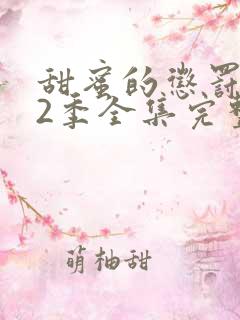 甜蜜的惩罚
2季全集完整
萌柚甜